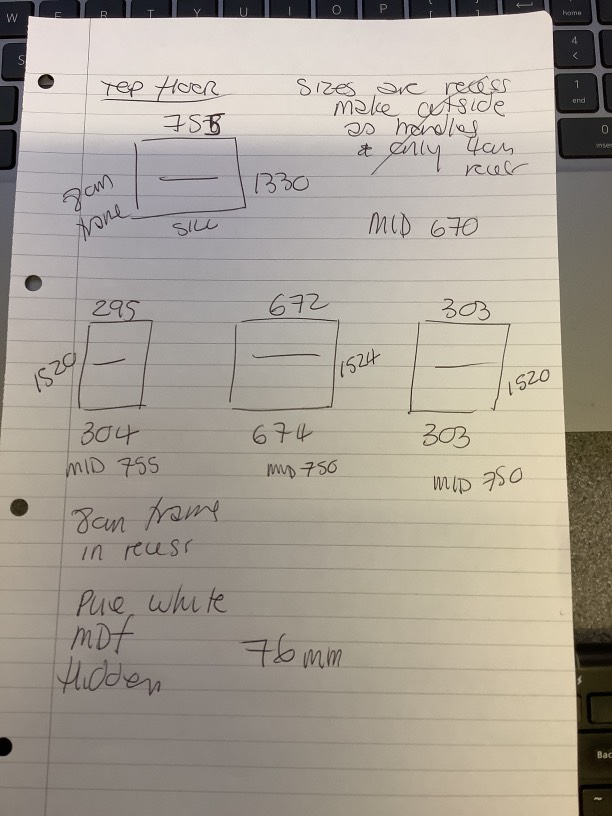 W E R T Y U I O P
home
4
1
end
0
TOP FLOOR
Sizes are recess
make outside
as handles
& only 4cm
recess
755
8cm
frame
1330
SILL
MID 670
295
672
303
1520
1524
1520
304
674
303
MID 755
MID 750
MID 750
8cm frame
in recess
Pure white
MDF
76mm
Hidden